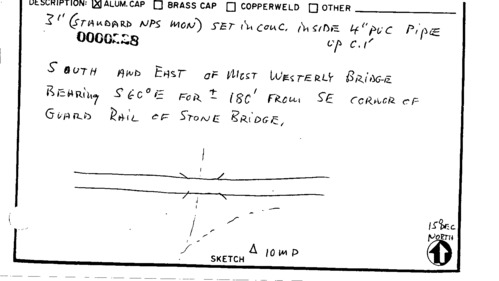 DESCRIPTION: ☒ ALUM.CAP ☐ BRASS CAP ☐ COPPERWELD ☐ OTHER
3" (STANDARD NPS MON) SET IN CONC. INSIDE 4" PVC PIPE
UP 0.1'
SOUTH AND EAST OF MOST WESTERLY BRIDGE
BEARING S60°E FOR ± 180' FROM SE CORNER OF
GUARD RAIL OF STONE BRIDGE.
NORTH
Δ 10 MP
SKETCH